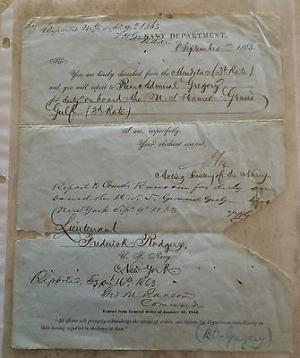 Reported N.Y. Sept 9th 1863
NAVY DEPARTMENT,
September 1863.
Sir
You are hereby detached from the Mendota (3d Rate)
and you will report to Rear Admiral Gregory
for duty on board the U. S. Steamer Grand
Gulf (3d Rate)
I am, respectfully,
Your obedient servant,
Acting Secretary of the Navy.
Report to Comdr Ransom for duty on
board the U. S. S. Grand Gulf
New York Sept 9th 1863
Lieutenant
Frederick Rodgers
U. S. Navy
New York
Reported Sept 16th 1863
Geo. M. Ransom
Commander
Extract from General Order of January
"All officers will promptly acknowledge the receipt of orders, and inform the Department immediately on
their having reported in obedience to them."